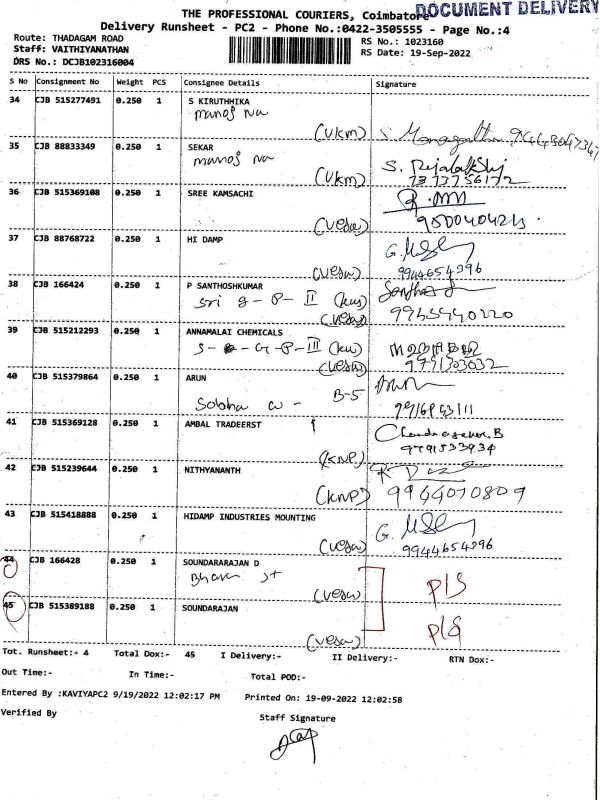 THE PROFESSIONAL COURIERS, Coimbatore
DOCUMENT DELIVERY
Delivery Runsheet - PC2 - Phone No.:0422-3505555 - Page No.:4
Route: THADAGAM ROAD
RS No.: 1023160
Staff: VAITHIYANATHAN
RS Date: 19-Sep-2022
DRS No.: DCJB102316004
S No Consignment No Weight PCS Consignee Details Signature
34 CJB 515277491 0.250 1 S KIRUTHHIKA
manoj Na
(Vkm)
35 CJB 88833349 0.250 1 SEKAR
manoj Na
(Vkm) 7373756172
36 CJB 515369108 0.250 1 SREE KAMSACHI
(Vesa) 9500404213
37 CJB 88768722 0.250 1 HI DAMP
(Vesa) 9944654396
38 CJB 166424 0.250 1 P SANTHOSHKUMAR
Sri G - P - II
(Vesa)
39 CJB 515212293 0.250 1 ANNAMALAI CHEMICALS
S - G - P - III
(Vesa)
40 CJB 515379864 0.250 1 ARUN
B-5
Sobha
41 CJB 515369128 0.250 1 AMBAL TRADEERST
Chandrasekar.B
(KNP) 9791533934
42 CJB 515239644 0.250 1 NITHYANANTH
(KNP) 9944070809
43 CJB 515418888 0.250 1 HIDAMP INDUSTRIES MOUNTING
(Vesa) 9944654396
44 CJB 166428 0.250 1 SOUNDARARAJAN D
(Vesa) P/S
45 CJB 515389188 0.250 1 SOUNDARAJAN
(Vesa) P/S
Tot. Runsheet:- 4 Total Dox:- 45 I Delivery:- II Delivery:- RTN Dox:-
Out Time:- In Time:- Total POD:-
Entered By :KAVIYAPC2 9/19/2022 12:02:17 PM Printed On: 19-09-2022 12:02:58
Verified By Staff Signature